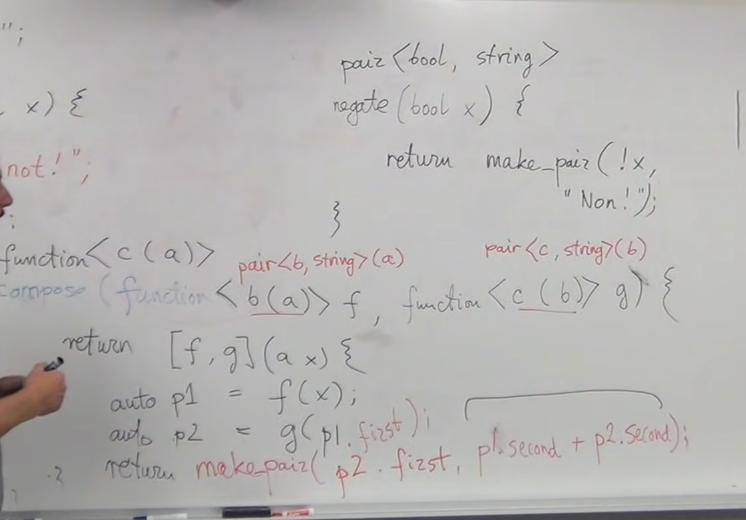 ";
pair<bool, string>
x) {
negate(bool x) {
not!";
return make_pair(!x,
"Non!");
}
function<c(a)>
pair<b, string>(a)
pair<c, string>(b)
compose(function<b(a)> f, function<c(b)> g) {
return [f, g](a x) {
auto p1 = f(x);
auto p2 = g(p1.first);
return make_pair(p2.first, p1.second + p2.second);